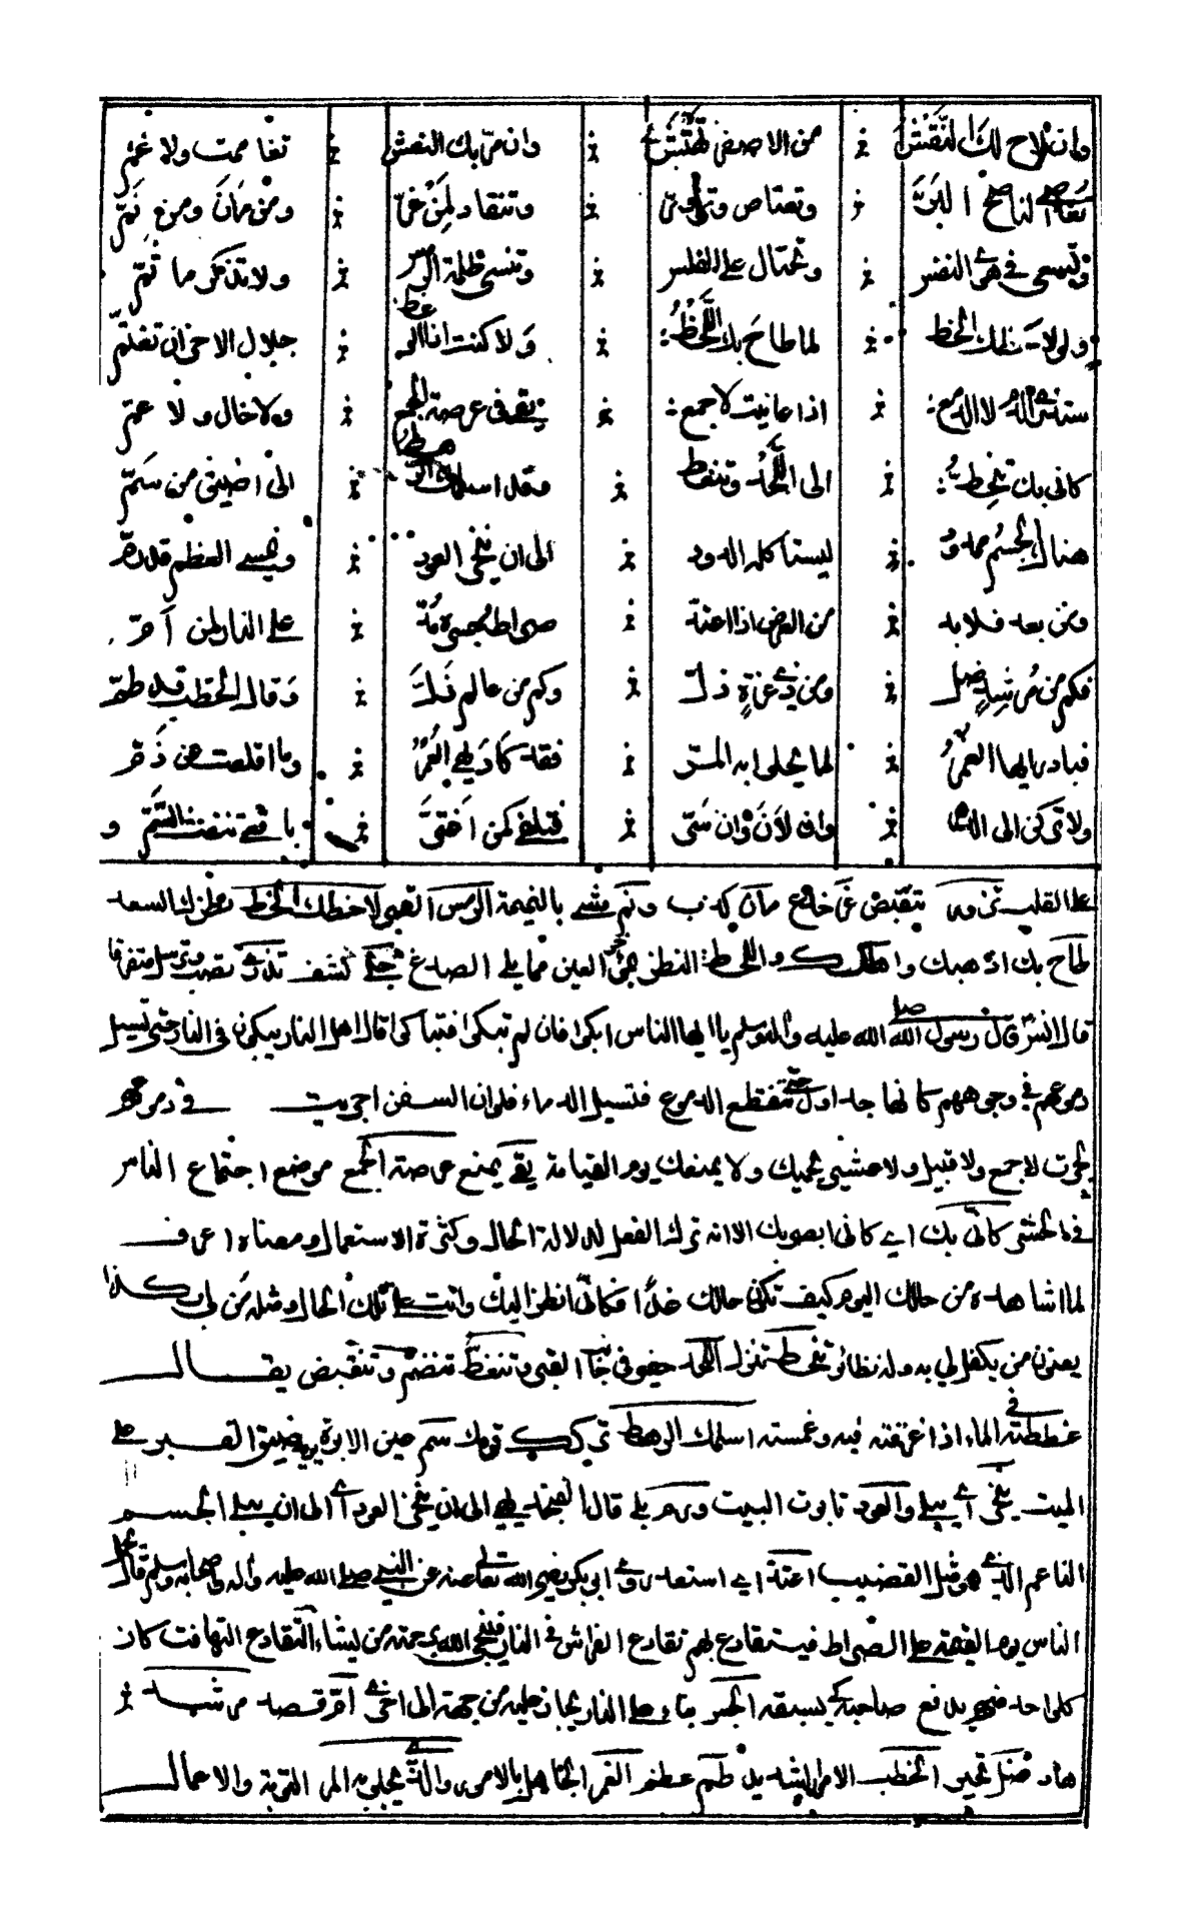 وان لاح لك النقش من الاصفر تهتش وان مرّ بك النعش تغاممت ولا غم
تعاصي الناصح البرّ وتعتاص وتزوّر وتنقاد لمن غرّ ومن مان ومن نمّ
وتسعى في هوى النفس وتحتال على الفلس وتنسى ظلمة الرمس ولا تذكر ما ثمّ
ولو لاحظك الحظ لما طاح بك اللحظ ولا كنت اذا الوعظ جلا الاحزان تغتمّ
ستذري الدم لا الدمع اذا عاينت لا جمع يقى في عرصة الجمع ولا خال ولا عمّ
كاني بك تنحط الى اللحد وتنغط وقد اسلمك الرهط الى اضيق من سمّ
هناك الجسم ممدود ليستاكله الدود الى ان ينخر العود ويمسي العظم قد رمّ
ومن بعد فلا بد من العرض اذا اعتد صراط جسره مدّ على النار لمن أمّ
فكم من مرشد ضلّ ومن ذي عزة ذلّ وكم من عالم زلّ وقال الخطب قد طمّ
فبادر ايها الغمر لما يحلو به المر فقد كاد يهي العمر وما اقلعت عن ذمّ
ولا تركن الى الدهر وان لان وان سرّ فتلفى كمن اغترّ بافعى تنفث السمّ و
على القلب تزور تنقبض غرّ خادع مان كذب ونم مشى بالنميمة الرمس القبر لاحظك الحظ نظر اليك السعد
طاح بك اذهبك واهلكك واللحظ النظر بمؤخر العين مما يلي الصدغ جلى كشف تذري تصب متفرقا
قال انس قال رسول الله صلى الله عليه واله وسلم يا ايها الناس ابكوا فان لم تبكوا فتباكوا فان اهل النار يبكون في النار حتى تسيل
دموعهم في وجوههم كانها جداول حتى تنقطع الدموع فتسيل الدماء فلو ان السفن اجريت في دموعهم
لجرت لا جمع ولا قبيل ولا عشير يحميك ولا يمنعك يوم القيامة يقي يمنع عرصة الجمع موضع اجتماع الناس
في الحشر كاني بك اي كاني ابصر بك الا انه ترك الفعل لدلالة الحال وكثرة الاستعمال ومعناه اعرف
لما اشاهده من حالك اليوم كيف تكون حالك غدا فكاني انظر اليك وانت على تلك الحال ومثله من لي بكذا
يعنون من يكفل لي به وله نظائر تنحط تنزل اللحد حفرة في جانب القبر وتنغط تنضم وتنقبض يقال
غططته في الماء اذا غرقته فيه وغمسته اسلمك الرهط تركك قومك سم عين الابرة يريد ضيق القبر على
الميت ينخر اي يبلى والعود تابوت الميت ورم بلى قال الى ان ينخر العود اي الى ان يبلى الجسم
الناعم الذي هو مثل القضيب اعتد اي استعد روى ابو بكر رضى الله تعالى عنه عن النبي صلى الله عليه واله واصحابه وسلم قال يحمل
الناس يوم القيمة على الصراط فيتقادع بهم تقادع الفراش في النار فينجي الله برحمته من يشاء التقادع التهافت كان
كل واحد منهم يدفع صاحبه كي يسبقه الجسر بناء على النار يجاز عليه من جهة الى اخرى أمّ قصد مرشد
هاد ضل تحير الخطب الامر الشديد طم عظم الغمر الجاهل بالامور والذي يحلو به المر التوبة والاعمال